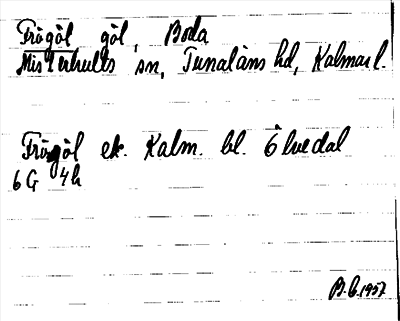 Frögöl göl, Boda
Misterhults sn, Tunaläns hd, Kalmar l.
Frögöl ek. Kalm. bl. Ölvedal
6 G 4h
B.G. 1957